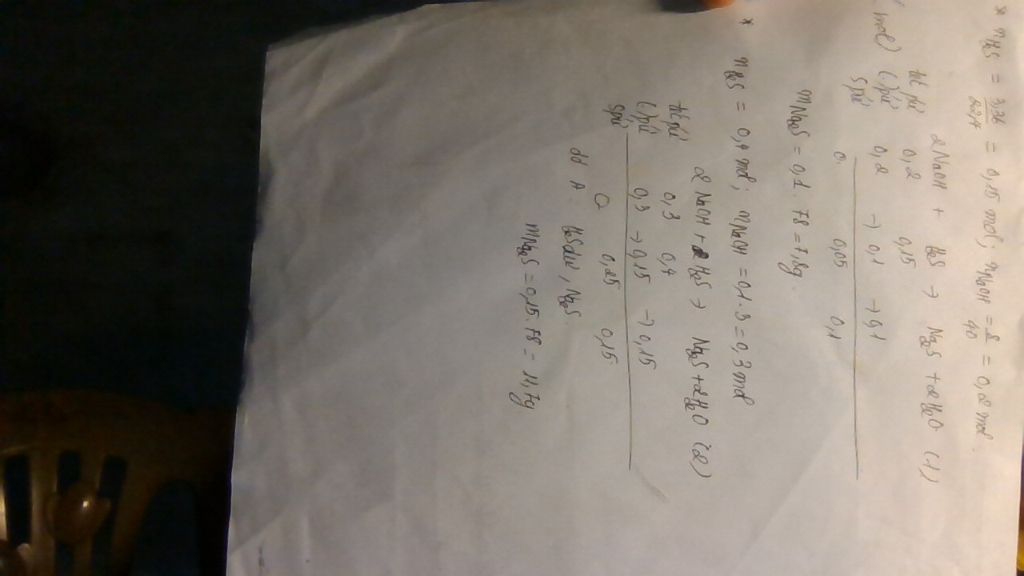 * nH₂S = 3,36/22,4 = 0,15 mol; nNaOH = 8/40 = 0,2 mol.
2NaOH + H₂S → Na₂S + 2H₂O (1)
tt pứ 0,2 0,15
mol) (pứ 0,2 → 0,1 → 0,1
spứ 0 0,05 0,1
mNa₂S = 0,1.78 = 7,8g.
* nH₂S = 0,4 mol; nNaOH = 0,1.3 = 0,3 mol
2NaOH + H₂S → Na₂S + 2H₂O (2)
tt pứ 0,3 0,4
(pứ 0,3 → 0,15 → 0,15
spứ 0 0,25 0,15
dd A: H₂S dư, Na₂S
mNa₂S = 0,15.78 = 11,7g